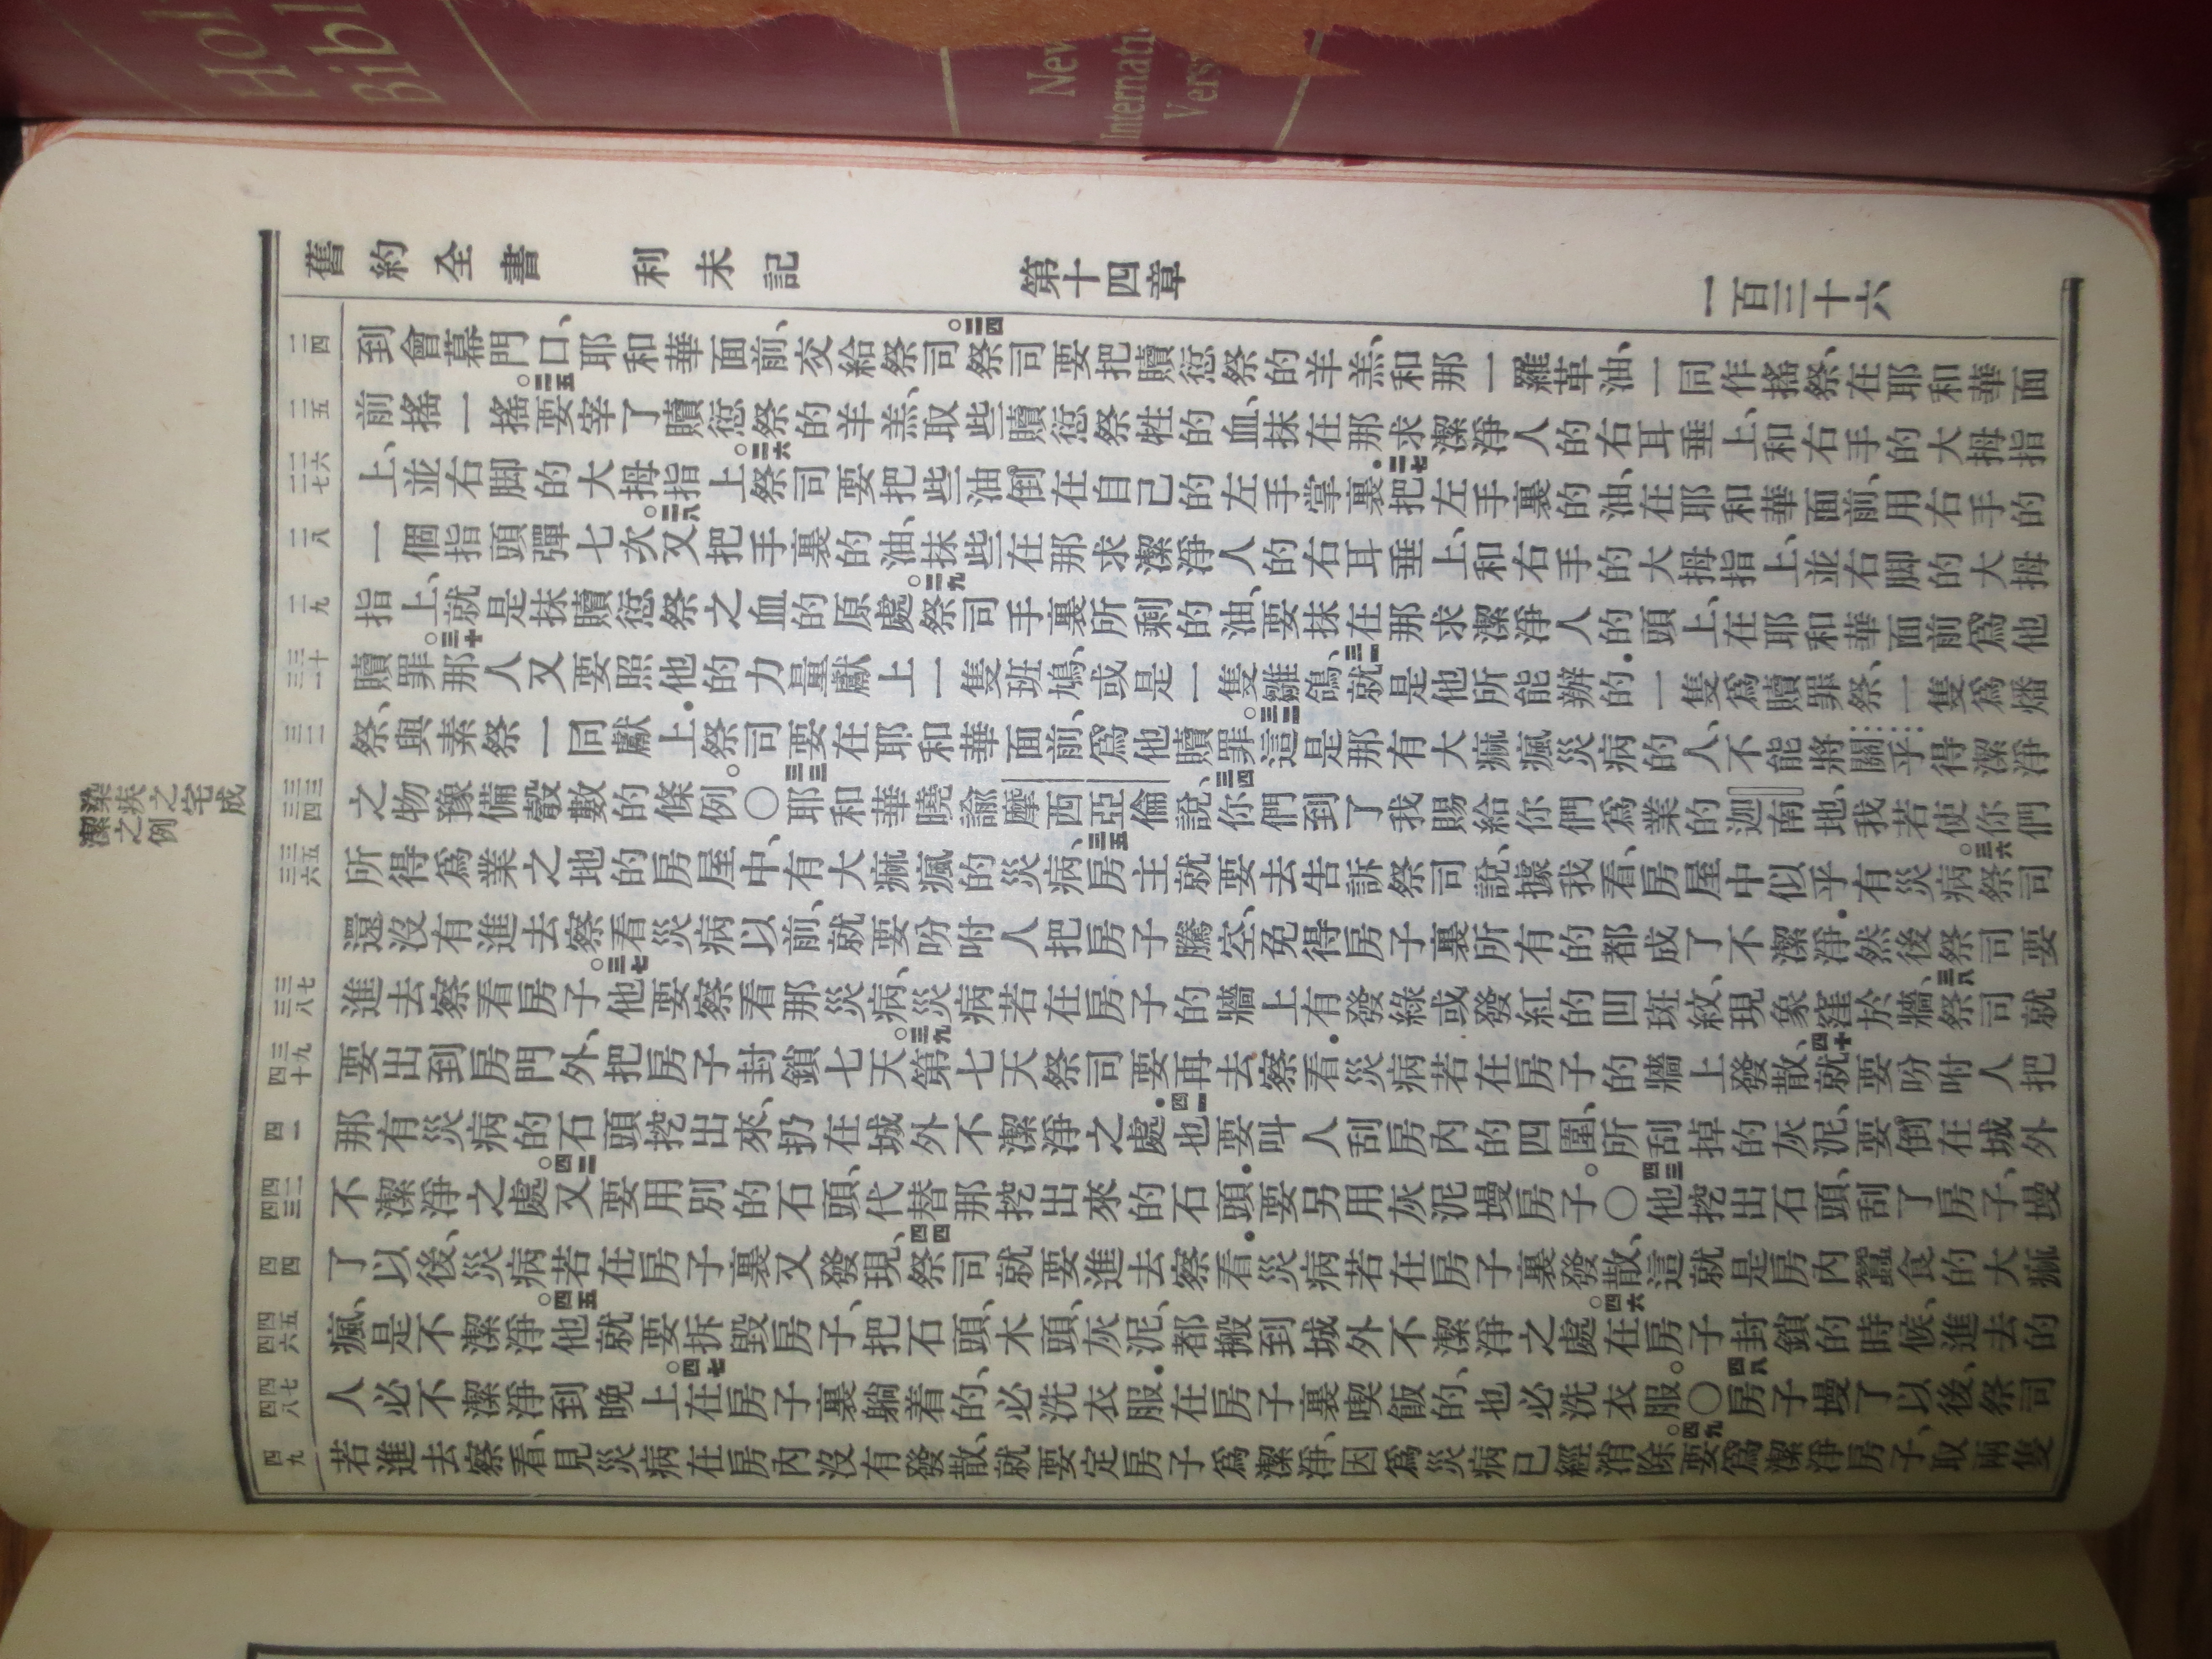 Hol
Bibl
New
Internati
Vers
舊約全書 利未記 第十四章 一百三十六
二四 到會幕門口、耶和華面前、交給祭司。二四祭司要把贖愆祭的羊羔、和那一羅革油、一同作搖祭、在耶和華面
二五 前搖一搖。二五要宰了贖愆祭的羊羔、取些贖愆祭牲的血、抹在那求潔淨人的右耳垂上、和右手的大拇指
二六 二七 上、並右脚的大拇指上。二六祭司要把些油倒在自己的左手掌裏．二七把左手裏的油、在耶和華面前、用右手的
二八 一個指頭彈七次。二八又把手裏的油、抹些在那求潔淨人的右耳垂上、和右手的大拇指上、並右脚的大拇
二九 指上、就是抹贖愆祭之血的原處。二九祭司手裏所剩的油、要抹在那求潔淨人的頭上、在耶和華面前爲他
三十 三一 贖罪。三十那人又要照他的力量獻上一隻班鳩、或是一隻雛鴿、三一就是他所能辦的．一隻爲贖罪祭、一隻爲燔
三二 祭、與素祭一同獻上．祭司要在耶和華面前、爲他贖罪。三二這是那有大痲瘋災病的人、不能將關乎得潔淨
三三 三四 之物豫備彀數的條例。〇三三耶和華曉諭摩西亞倫說、三四你們到了我賜給你們爲業的迦南地、我若使你們
三五 三六 所得爲業之地的房屋中、有大痲瘋的災病、三五房主就要去告訴祭司說、據我看、房屋中似乎有災病。三六祭司
還沒有進去察看災病以前、就要吩咐人把房子騰空、免得房子裏所有的都成了不潔淨．然後祭司要
三七 三八 進去察看房子。三七他要察看那災病、災病若在房子的牆上有發綠或發紅的凹斑紋、現象窪於牆、三八祭司就
三九 四十 要出到房門外、把房子封鎖七天。三九第七天祭司要再去察看．災病若在房子的牆上發散、四十就要吩咐人把
四一 那有災病的石頭挖出來、扔在城外不潔淨之處．四一也要叫人刮房內的四圍、所刮掉的灰泥、要倒在城外
四二 四三 不潔淨之處。四二又要用別的石頭、代替那挖出來的石頭．要另用灰泥墁房子。〇四三他挖出石頭、刮了房子、墁
四四 了以後、災病若在房子裏又發現、四四祭司就要進去察看．災病若在房子裏發散、這就是房內蠶食的大痲
四五 四六 瘋、是不潔淨。四五他就要拆毀房子、把石頭、木頭、灰泥、都搬到城外不潔淨之處。四六在房子封鎖的時候、進去的
四七 四八 人必不潔淨到晚上。四七在房子裏躺着的、必洗衣服．在房子裏喫飯的、也必洗衣服。〇四八房子墁了以後、祭司
四九 若進去察看、見災病在房內沒有發散、就要定房子爲潔淨、因爲災病已經消除。四九要爲潔淨房子、取兩隻
染疾之宅成
潔之例